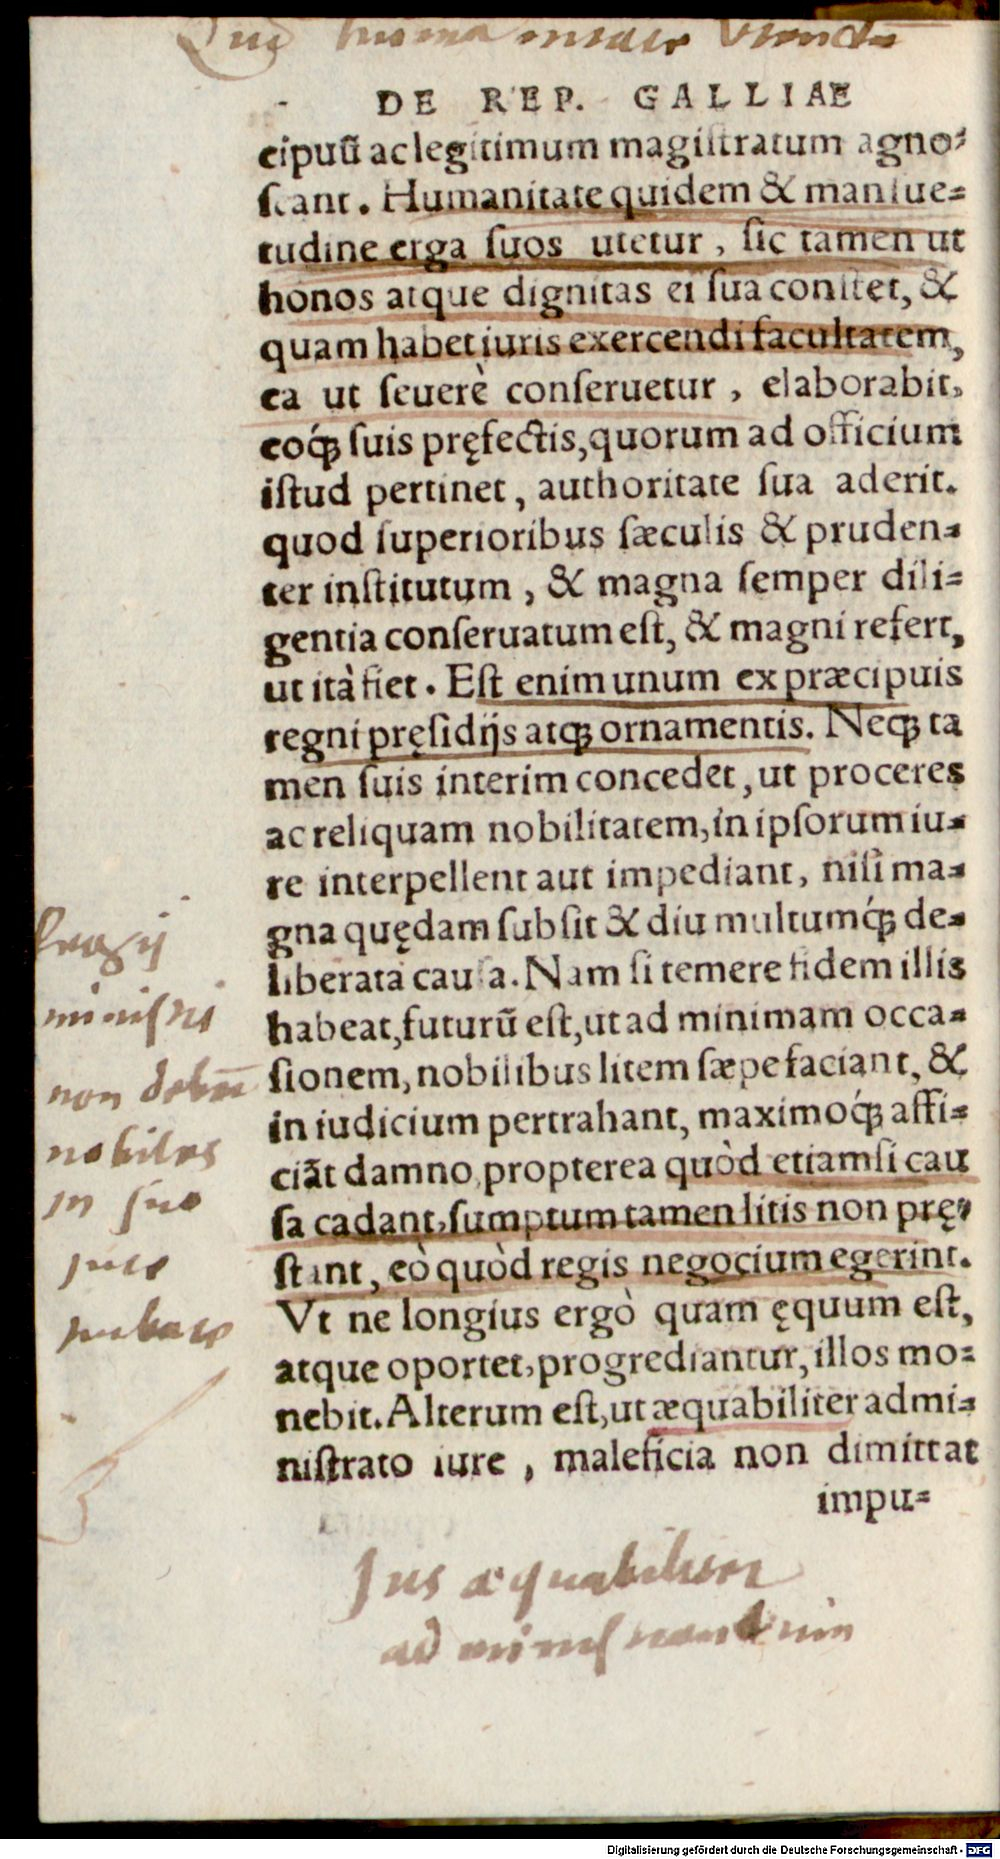 DE REP. GALLIAE
cipuũ ac legitimum magiſtratum agno⸗
ſcant. Humanitate quidem & manſue⸗
tudine erga ſuos utetur, ſic tamen ut
honos atque dignitas ei ſua conſtet, &
quam habet iuris exercendi facultatem,
ea ut ſeuerè conſeruetur, elaborabit,
eoq́ꝫ ſuis pręfectis, quorum ad officium
iſtud pertinet, authoritate ſua aderit.
quod ſuperioribus ſæculis & pruden⸗
ter inſtitutum, & magna ſemper dili⸗
gentia conſeruatum eſt, & magni refert,
ut ità fiet. Eſt enim unum ex præcipuis
regni pręſidijs atqꝫ ornamentis. Neqꝫ ta
men ſuis interim concedet, ut proceres
ac reliquam nobilitatem, in ipſorum iu⸗
re interpellent aut impediant, niſi ma⸗
gna quędam ſubſit & diu multumq́ꝫ de⸗
liberata cauſa. Nam ſi temere fidem illis
habeat, futurũ eſt, ut ad minimam occa⸗
ſionem, nobilibus litem ſæpe faciant, &
in iudicium pertrahant, maximoq́ꝫ affi⸗
ciãt damno propterea quòd etiamſi cau
ſa cadant, ſumptum tamen litis non pręſ⸗
ſtant, eò quòd regis negocium egerint.
Vt ne longius ergò quam ęquum eſt,
atque oportet, progrediantur, illos mo⸗
nebit. Alterum eſt, ut æquabiliter admi⸗
niſtrato iure, maleficia non dimittat
impu⸗
Regij
miniſtri
non debēt
nobiles
in ſuo
jure
turbare
Jus æquabiliter
adminiſtrandum
Digitalisierung gefördert durch die Deutsche Forschungsgemeinschaft - DFG